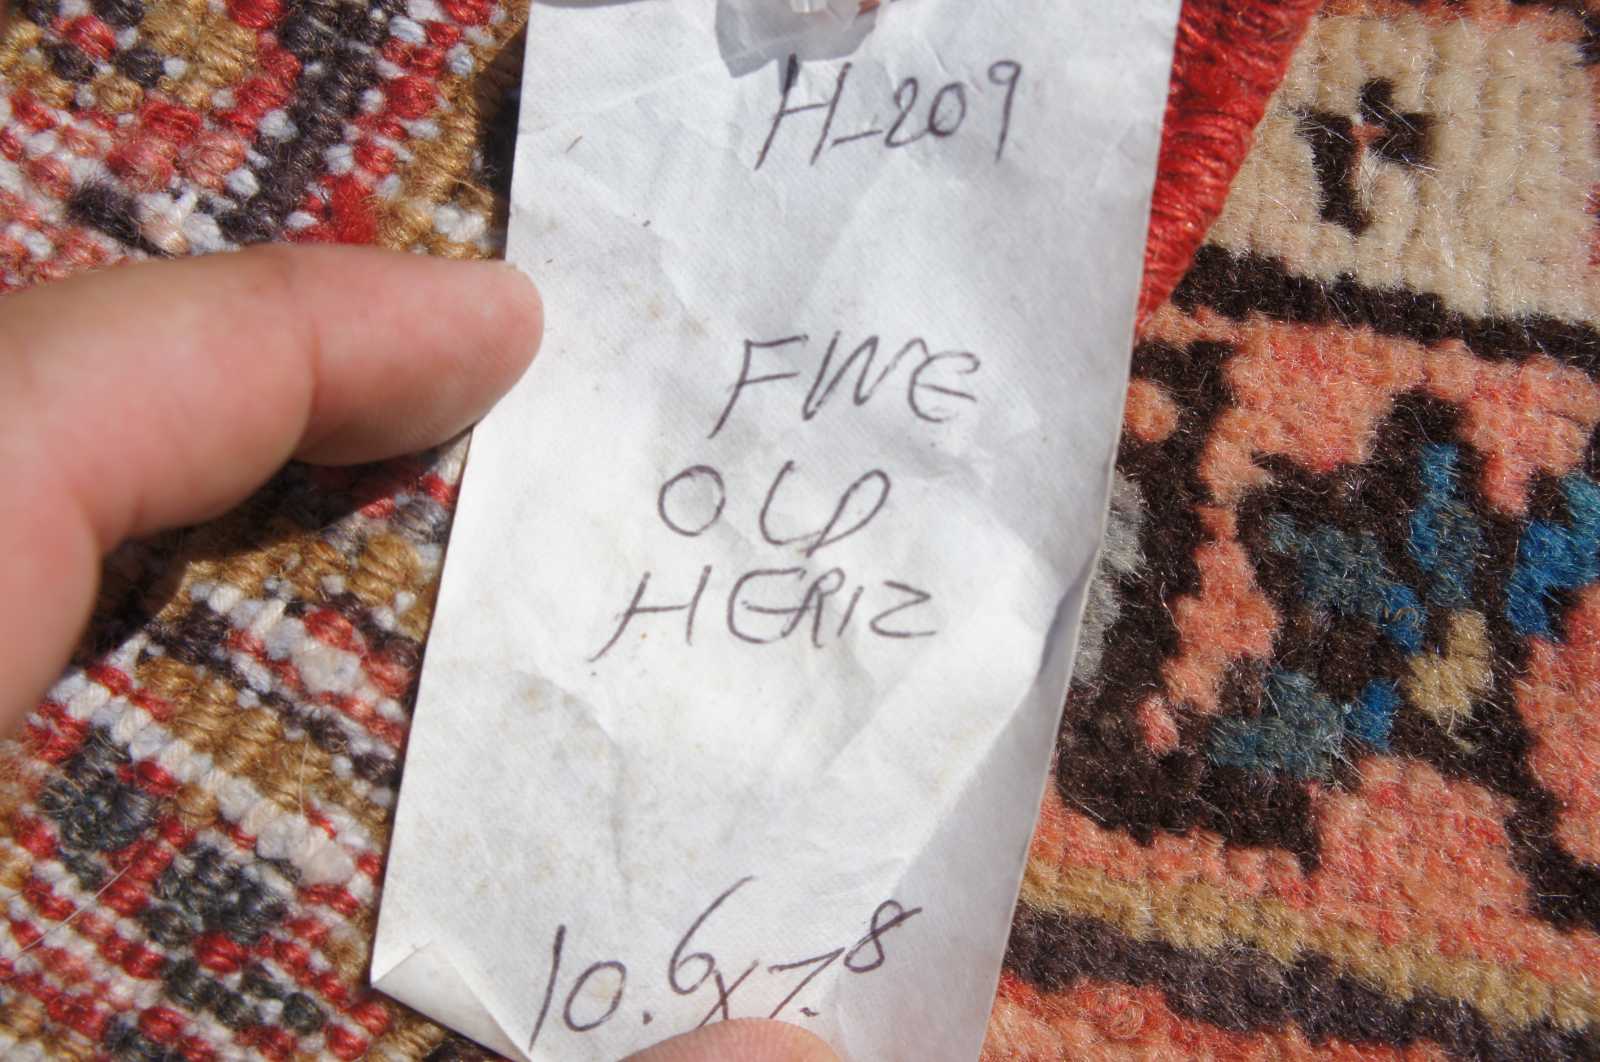 H-209
FINE
OLD
HERIZ
10.6x7.8